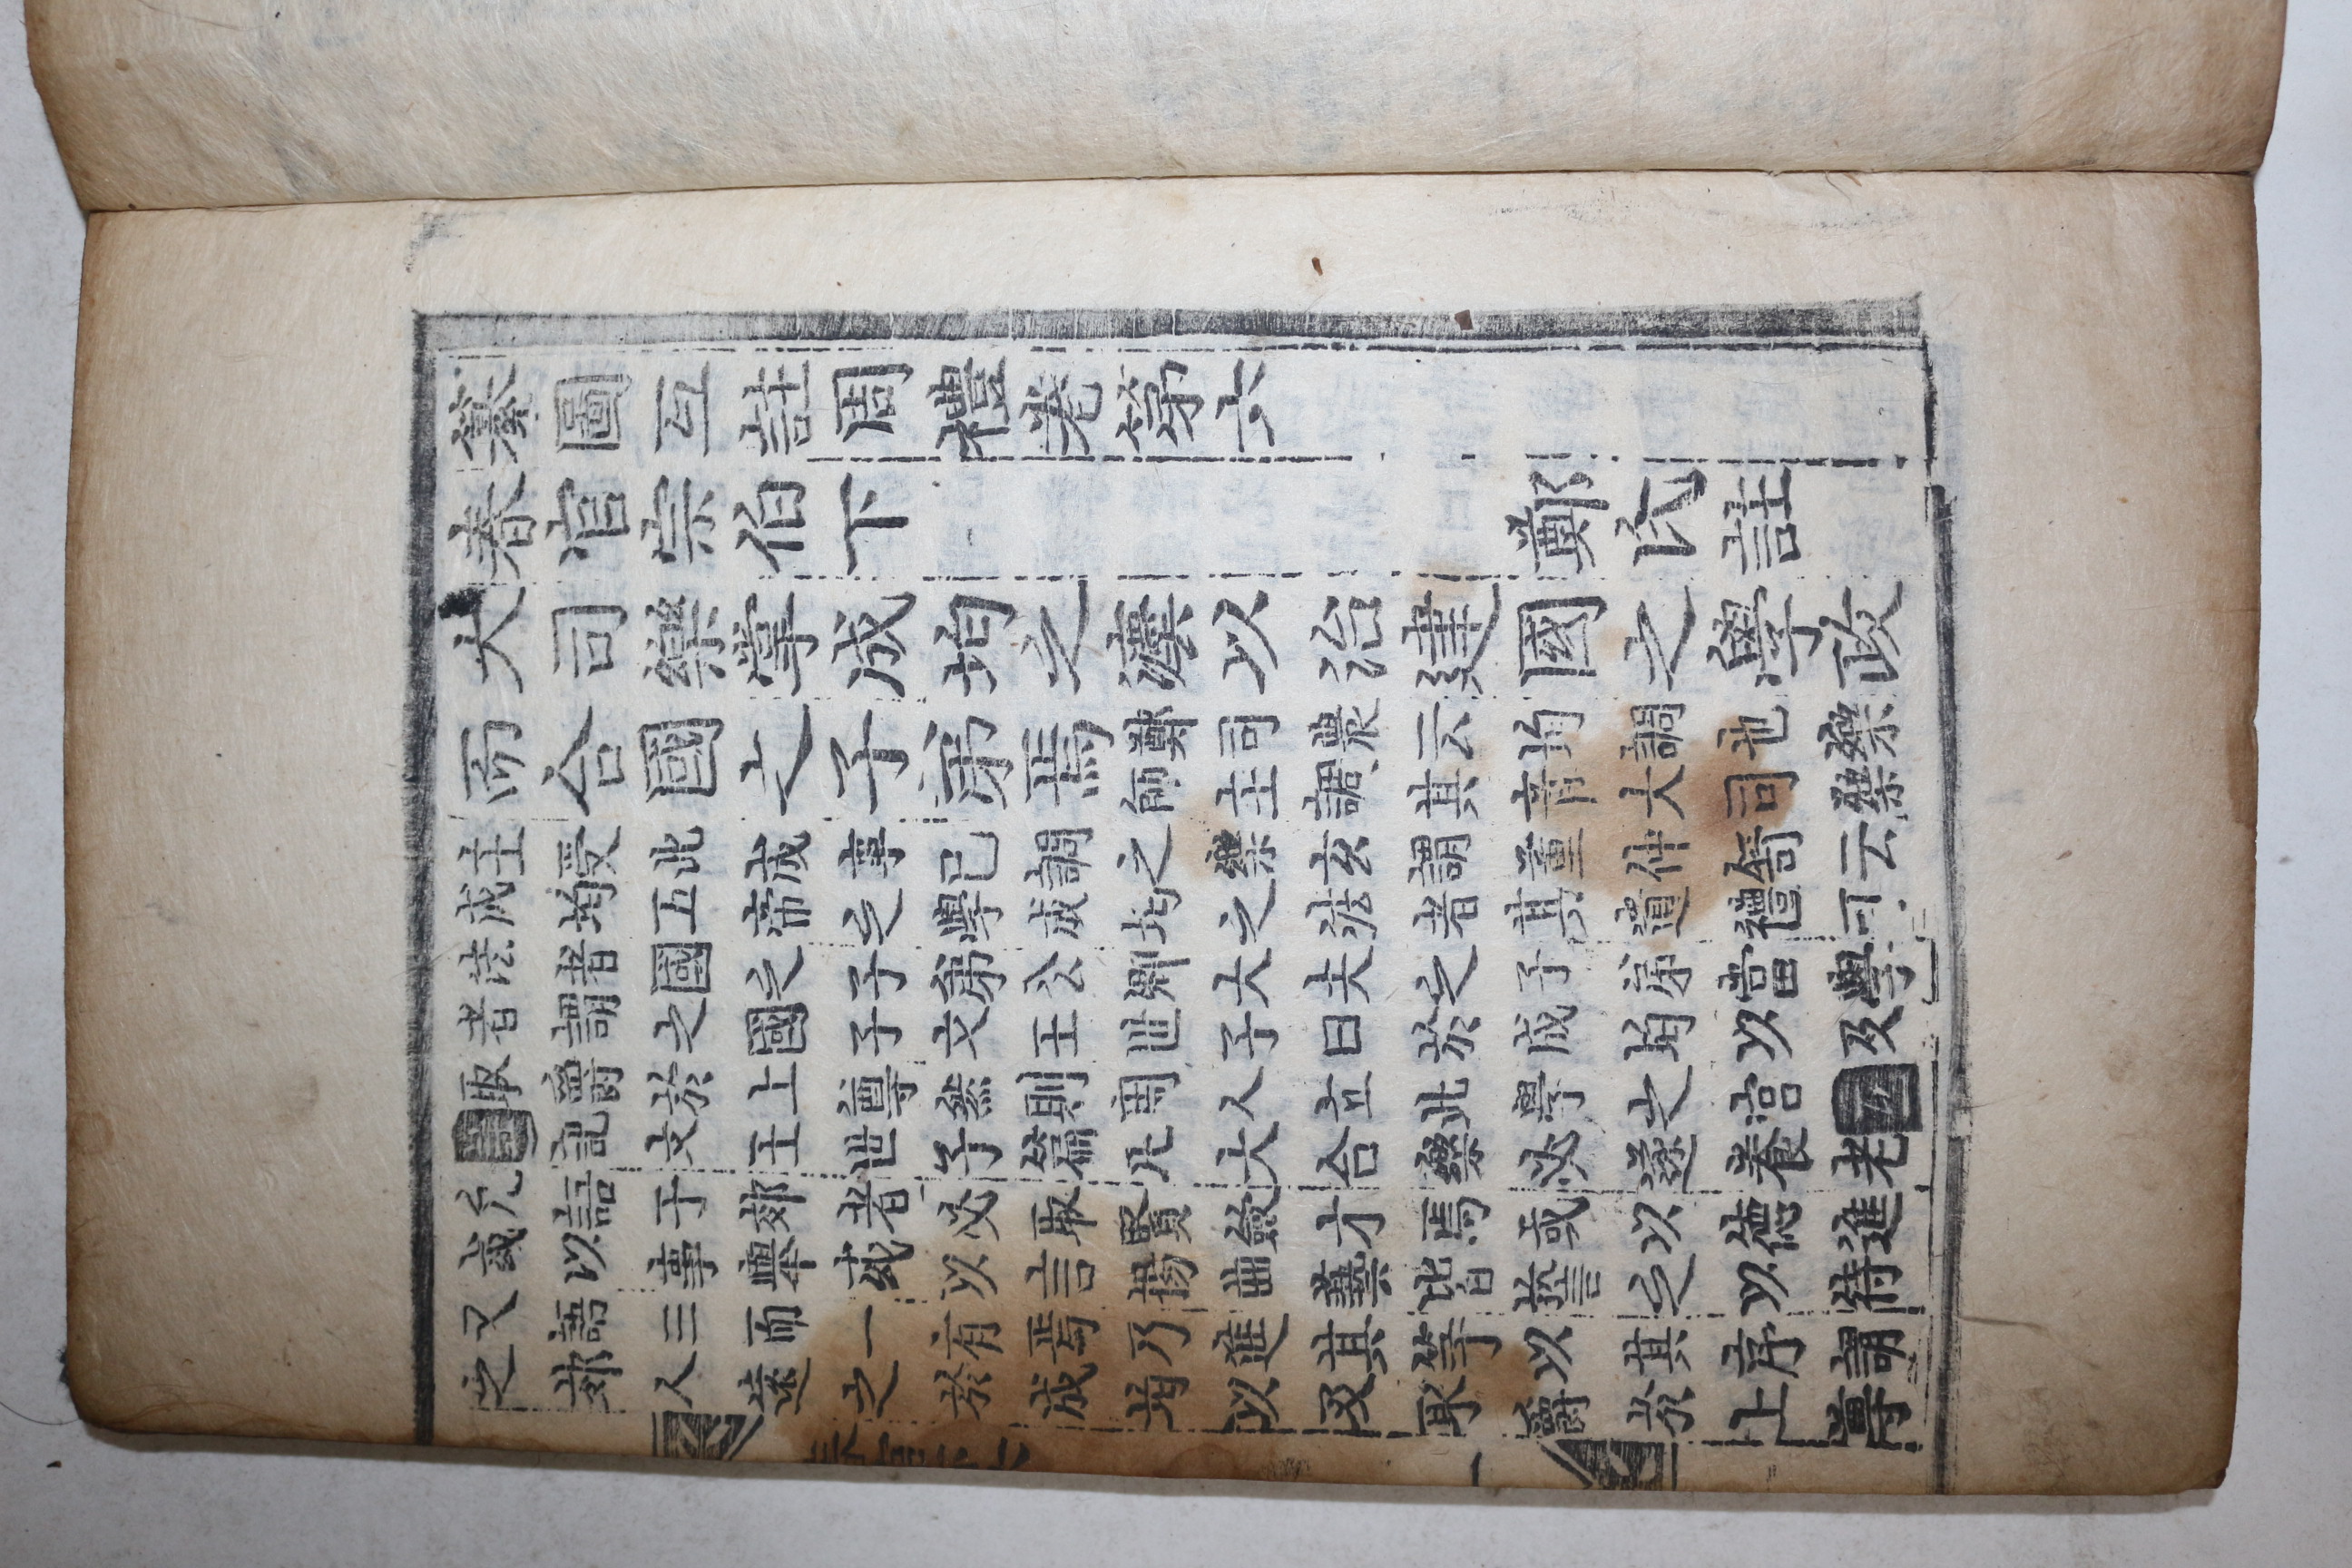 纂圖互註周禮卷第六
春官宗伯下 鄭氏註
大司樂掌成均之灋以治建國之學政
而合國之子弟焉
鄭司農云均調也樂
師主調其音大司樂
主受此成事已調之樂玄謂董仲舒云
成均五帝之學成均之法者其遺禮可
法者國之子弟公卿大夫之子弟當學
者謂之國子文王世子曰於成均以及
取爵於上尊然則周人立此學之宮互
註記文王世子篇凡大合樂必遂養老
凡語于郊者必取賢斂才焉或以德進
或以事舉或以言揚曲藝皆誓之以待
又語三而一有焉乃進其等以其序謂
之郊人遠之於成均以及取爵於上尊